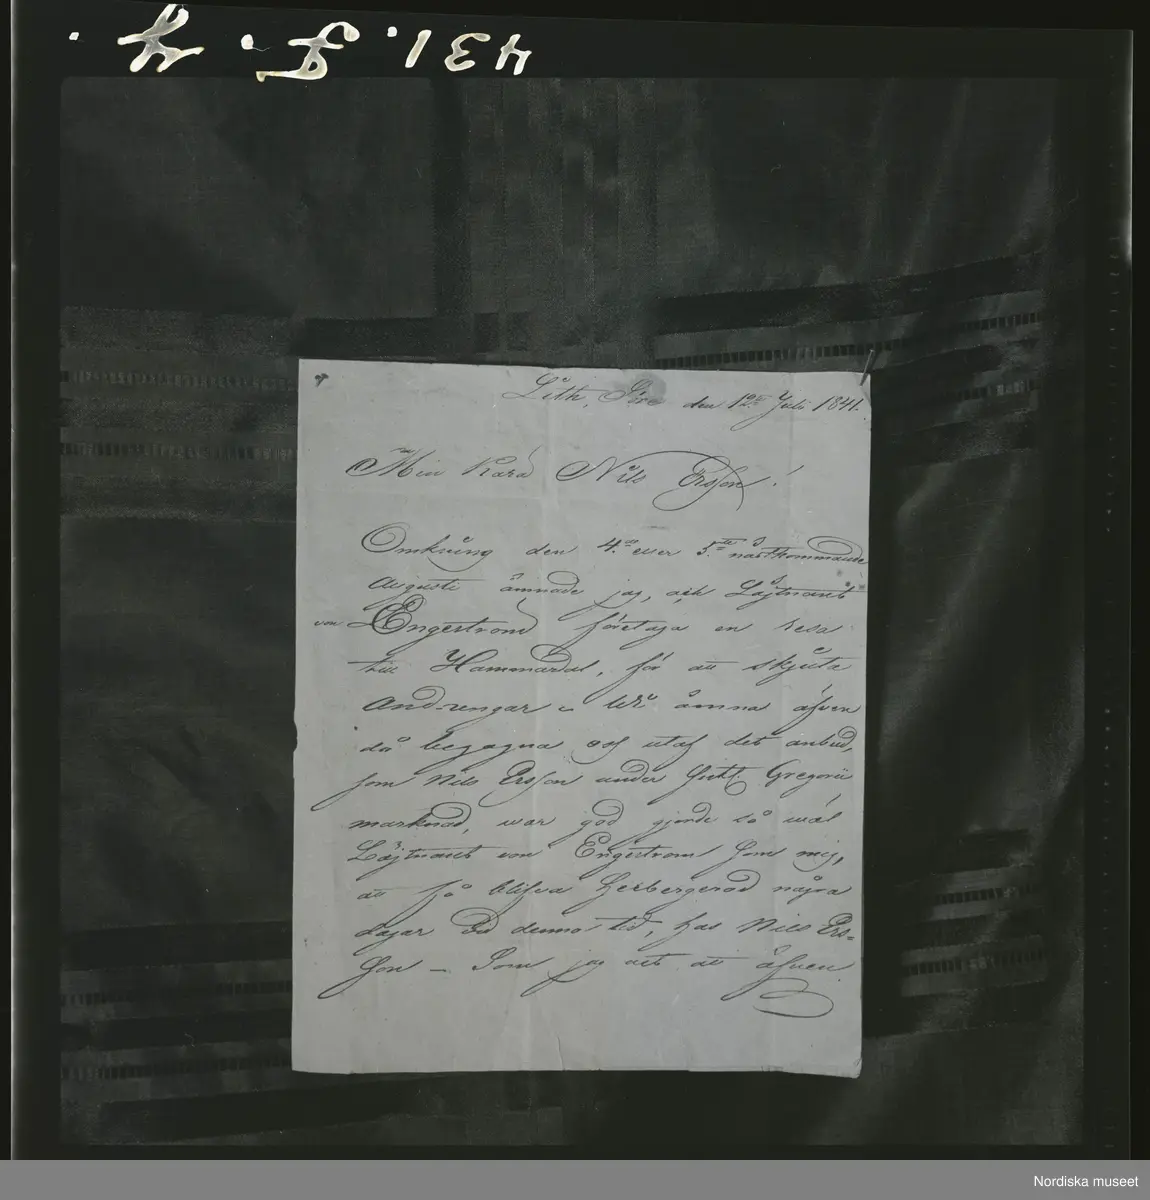 431. F. y.
Lith, Före den 12te Juli 1841.
Min Kära Nils Ersson!
Omkring den 4de eller 5te nästkommande
Augusti ämnade jag, och Löjtnant
von Engeström företaga en resa
till Hammardal, för att skjuta
And-ungar – Wi ämna äfven
då begagna oss utaf det anbud,
som Nils Ersson under sistl. Gregorii
marknad, war god gjorde så wäl
Löjtnant von Engeström som mig,
att få blifva Herbergerad några
dagar vid denna tid, hos Nils Ers=
son – Som jag vet att äfven
Nordiska museet